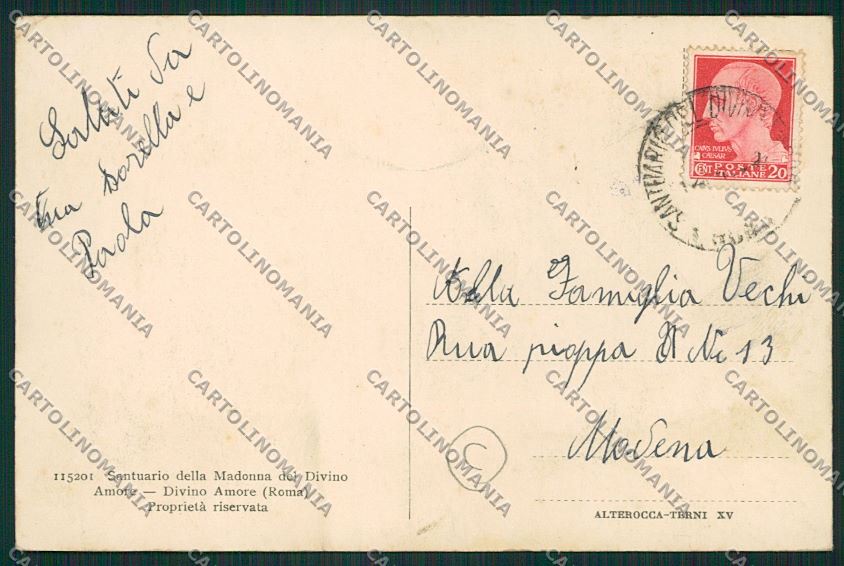 Saluti da
tua Sorella e
Paola
115201 Santuario della Madonna del Divino
Amore — Divino Amore (Roma)
Proprietà riservata
CAIVS IVLIVS
CAESAR
CENT POSTE ITALIANE 20
SANTUARIO DEL DIVIN
Alla Famiglia Vechi
Rua pioppa N 13
Modena
C
ALTEROCCA-TERNI XV
CARTOLINOMANIA